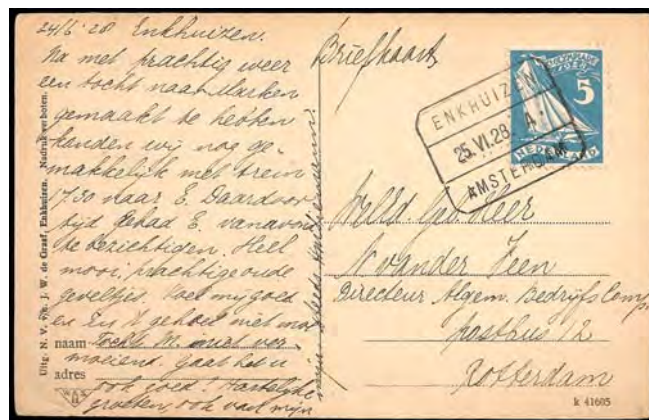 24/6 '28 Enkhuizen.
Na met prachtig weer
een tocht naar Marken
gemaakt te hebben
konden wij nog ge-
makkelijk met trein
17.30 naar E. Daardoor
tijd gehad E. vanavond
te bezichtigen. Heel
mooi, prachtige oude
geveltjes. Voel mij goed
en
geheel niet
naam tocht M. niet ver-
moeiend. Gaat het u
adres
ook goed! Hartelijke
groeten, ook van mijn
Uitg. N. V. v/h J. W. de Graaf, Enkhuizen. Nadruk verboten.
Briefkaart
OLYMPIADE
1928
5
NEDERLAND
ENKHUIZEN
25.VI.28. A.
AMSTERDAM
Weled. Geb. Heer
N van der Veen
Directeur Algem. Bedrijfs Comp.
posthus 12
Rotterdam
k 41605